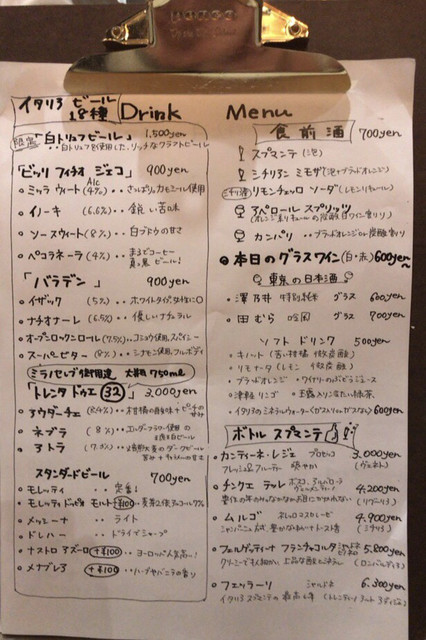 Drink Menu
イタリア ビール 18種
限定 「白トリュフビール」 1,500yen
・・白トリュフを使用した、リッチなクラフトビール
「ビッリフィチオ ジェコ」 900yen
Alc
・ミッラ ウィート (4%) ・・ さっぱりカモミール使用
・イノーキ (6.6%) ・・ 鋭い苦味
・ソースウィート (8%) ・・ 白ブドウの甘さ
・ペコラネーラ (4%) ・・ まるでコーヒー 真っ黒ビール!
「バラデン」 900yen
・イザック (5%)
・ナチオナーレ (6.5%) ・・ 優しいナチュラル
・オープンロックンロール (7.5%) ・・ コショウ使用、スパイシー
・スーパービター (8%) ・・ シナモン使用、フルボディ
ミラノセレブ御用達 大瓶750ml
「トレンタ ドゥエ 32」 3,000yen
・ネブラ (8%)
・アトラ (7.3%)
スタンダードビール 700yen
・モレッティ ・・ 定番!
・メッシーナ ・・ ライト
・ドレハー ・・ ドライでシャープ
・ナストロ アズーロ +¥100 ・・ ヨーロッパ人気高い!
・メナブレア +¥100 ・・ ハーブやバニラの香り
食前酒 700yen
スプマンテ (泡)
シチリアン ミモザ (泡+ブラッドオレンジ)
リモンチェッロ ソーダ (レモンリキュール)
アペロール スプリッツ
カンパリ ・・ ブラッドオレンジor炭酸割り
◎本日のグラスワイン (白・赤) 600yen〜
東京の日本酒
・澤乃井 特別純米 グラス 600yen
・田むら 吟ginjo グラス 700yen
ソフト ドリンク 500yen
・キノート (苦い柑橘 微炭酸)
・リモナータ (レモン 微炭酸)
・ブラッドオレンジ
・ワイナリーのぶどうジュース
・津軽リンゴ
・玉露入りなたい緑茶
・イタリアのミネラルウォーター(ガス入りorガスなし) 600yen
ボトル スプマンテ
・カンティーネ・レジェ プロセッコ 3,000yen
フレッシュ&フルーティー 爽やか (ヴェネト)
・チンクエ テッレ 4,200yen
(リグーリア)
・ムルゴ ネレッロマスカレーゼ 4,900yen
(シチリア)
・フェルゲッティーナ フランチャコルタ 5,800yen
(ロンバルディア)
・フェッラーリ シャルドネ 6,300yen
イタリアスプマンテの最高峰 (トレンティーノ アルト アディジェ)